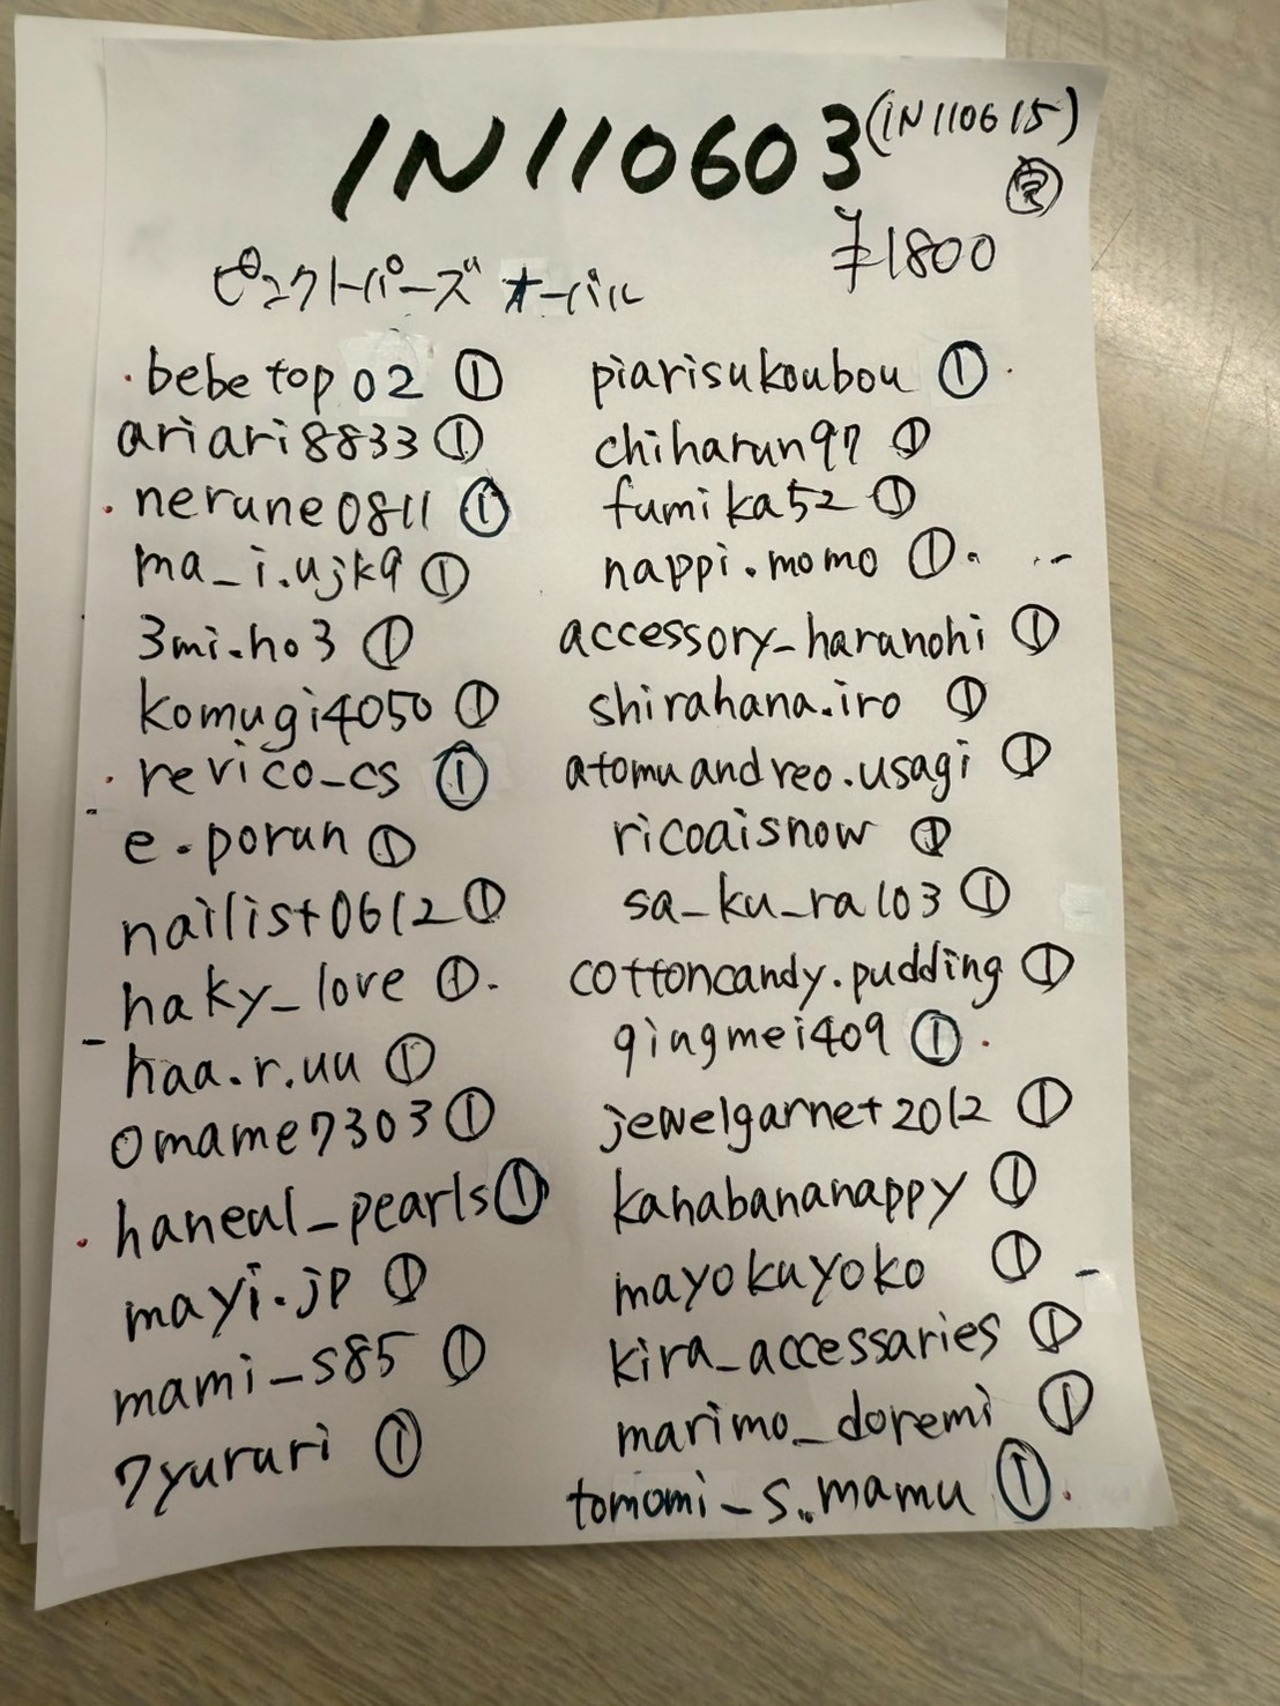 IN110603 (IN110615)
¥1800
ピンクトパーズ オーバル
bebetop02 ①
ariari8833 ①
nerune0811 ①
ma_i.ujk9 ①
3mi.ho3 ①
komugi4050 ①
revico_cs ①
e.porun ①
nailist0612 ①
haky_love ①
haa.r.uu ①
omame7303 ①
haneul_pearls ①
mayi.jp ①
mami_s85 ①
7yururi ①
piarisukoubou ①
chiharun97 ①
fumika52 ①
nappi.momo ①
accessory_haranohi ①
shirahana.iro ①
atomuandreo.usagi ①
ricoaisnow ①
sa_ku_ra103 ①
cottoncandy.pudding ①
qingmei409 ①
jewelgarnet2012 ①
kahabananappy ①
mayokuyoko ①
kira_accessaries ①
marimo_doremi ①
tomomi_s.mamu ①